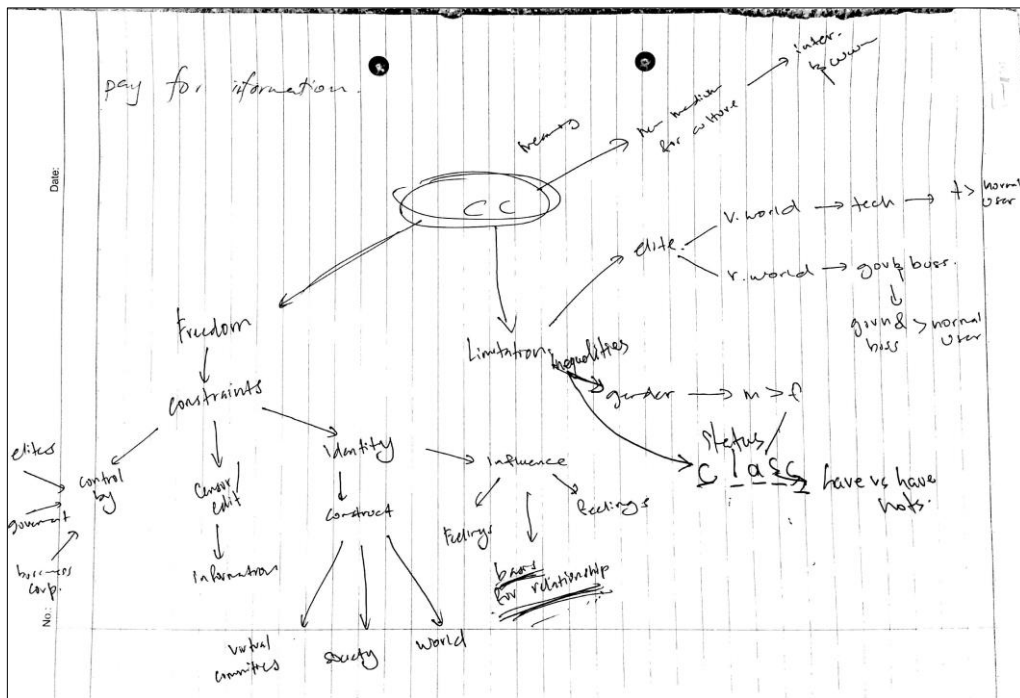 pay for information.
Date:
No.:
inter.
new medium
for culture
CC
V.world
tech
t > normal
user
elite.
r.world
govt & buss.
govn &
buss
> normal
user
Freedom
Limitation
Inequalities
gender
m > f
status
class
have vs have
nots.
constraints
elites
control
by
goverment
business
corp.
censor/
edit
information
identity
construct
virtual
society
world
influence
Feelings
feelings
basis
for relationship